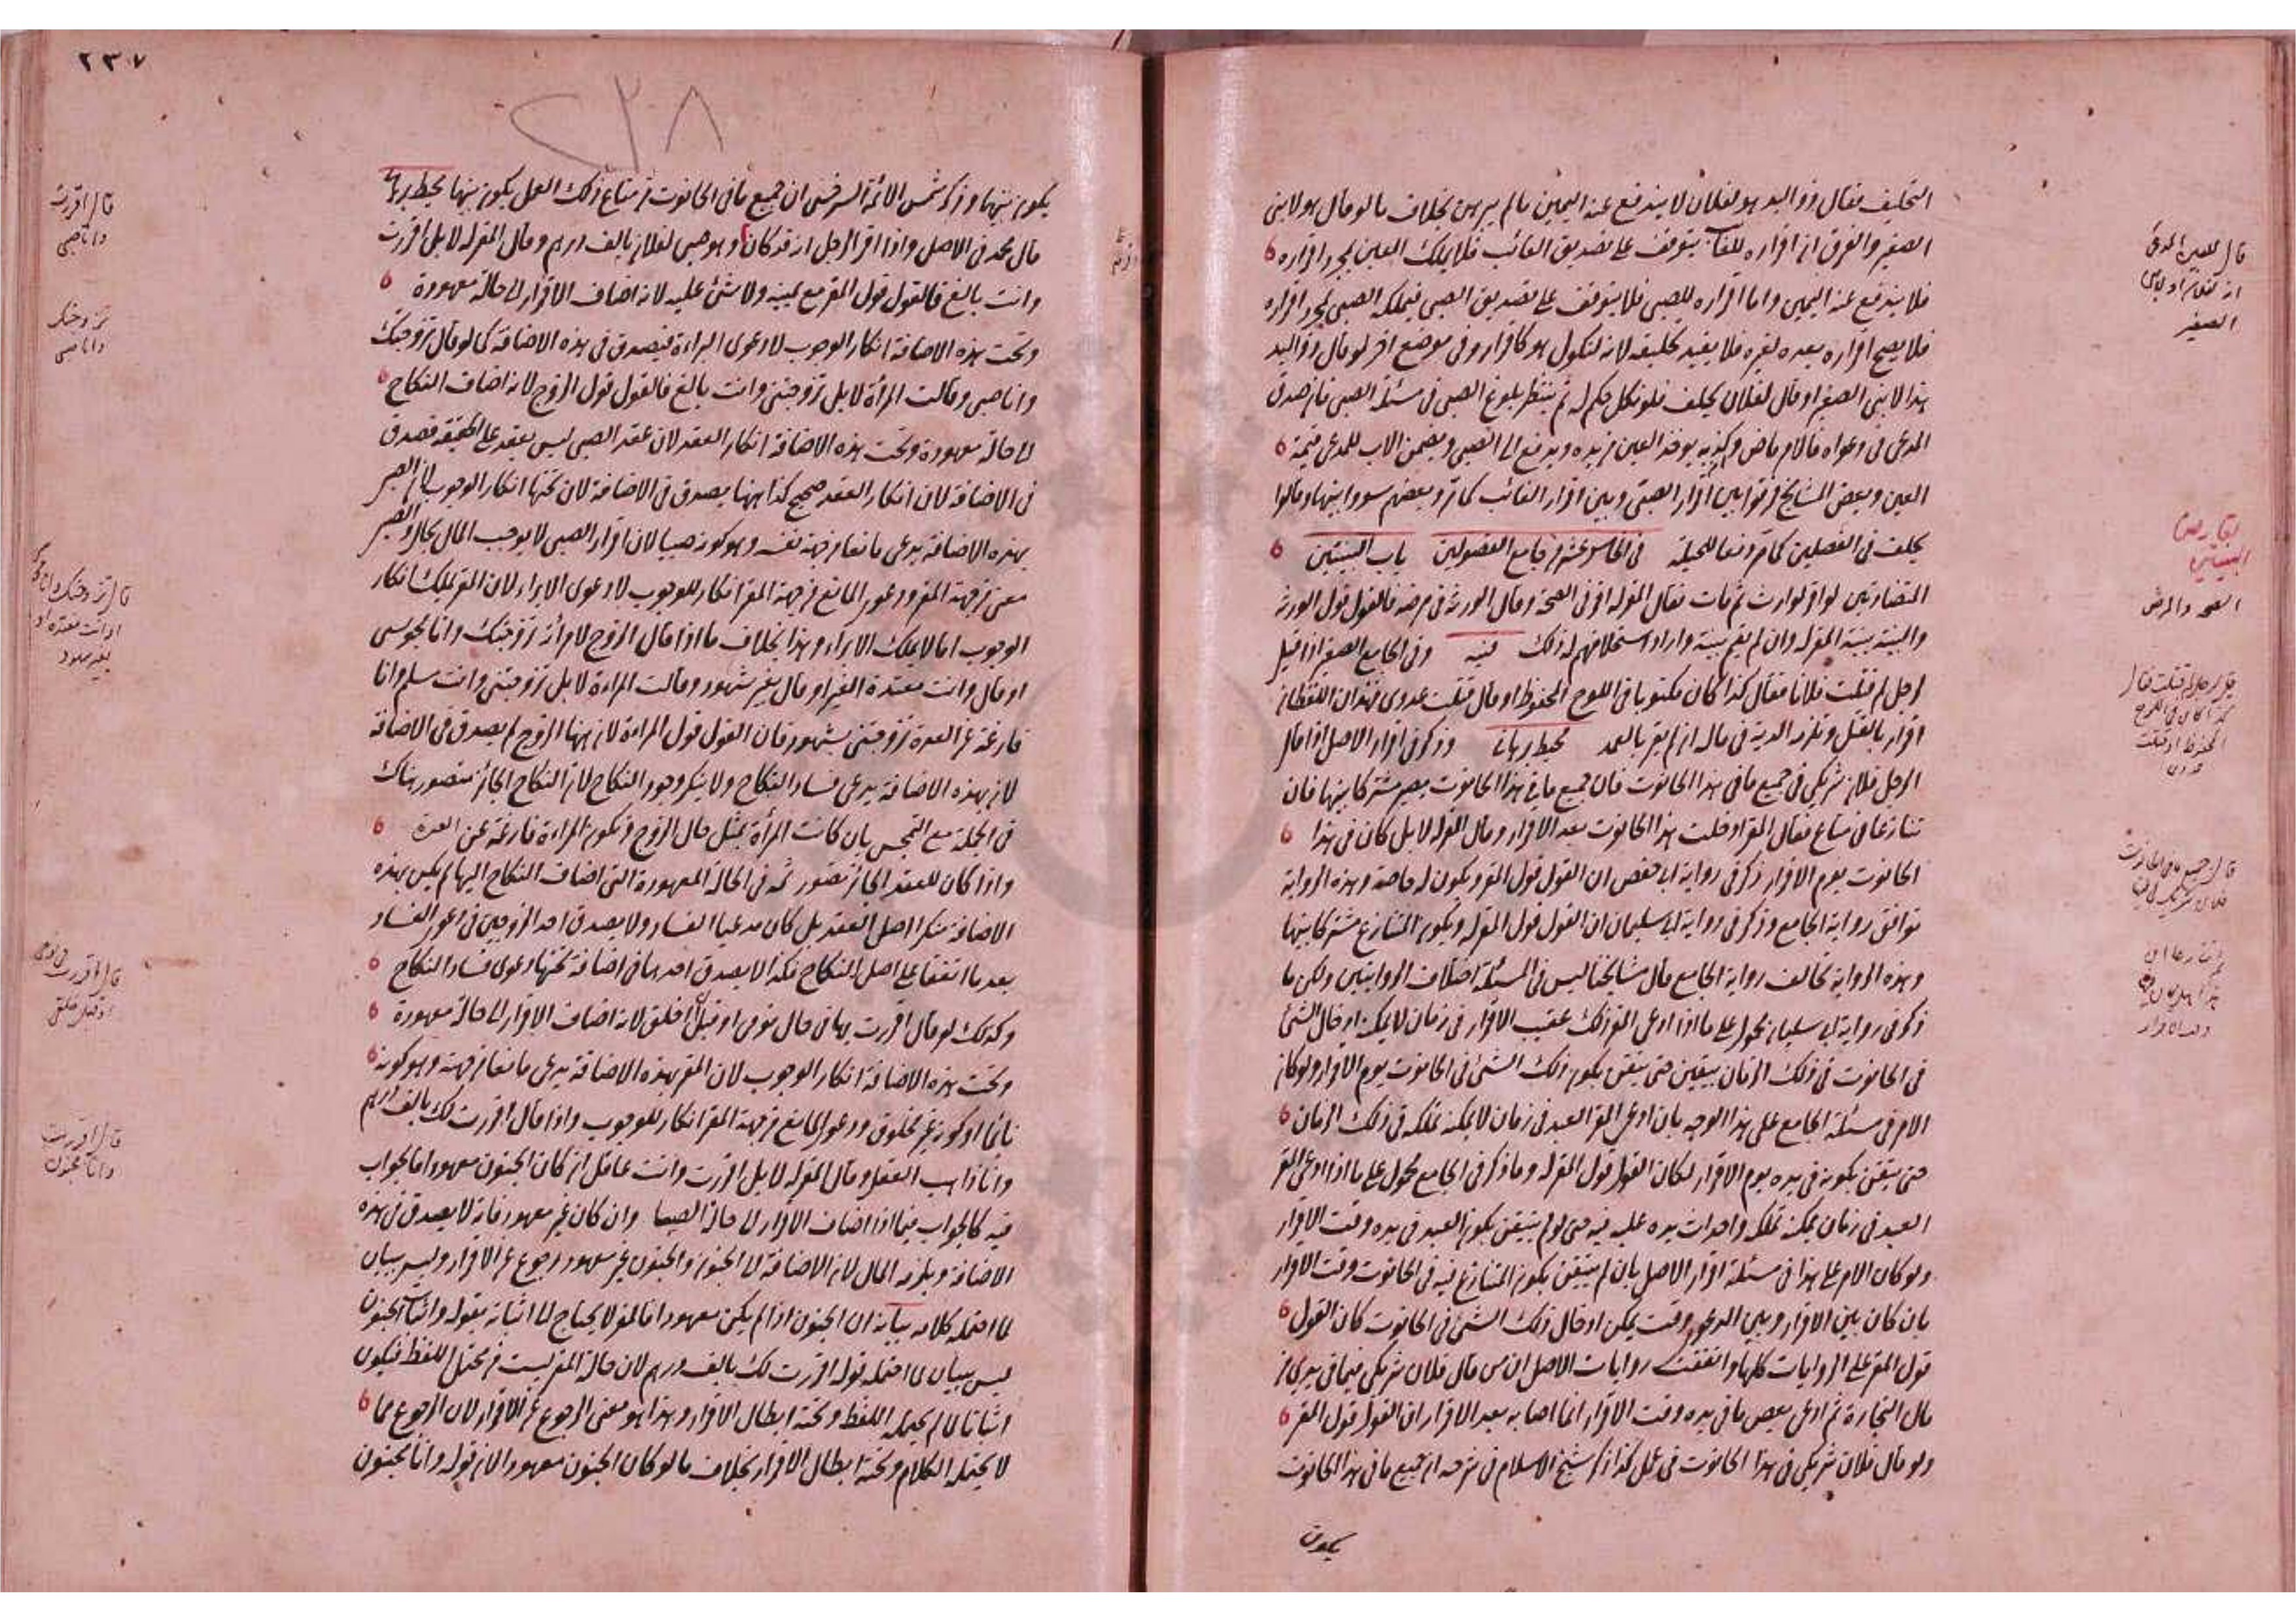 التحليف فقال ذو اليد هو لفلان لا يندفع عنه اليمين ما لم يبرهن بخلاف ما لو قال هو لابني
الصغير والفرق ان اقراره للغائب يتوقف على تصديق الغائب فلا يملك العين بمجرد اقراره
فلا يندفع عنه اليمين واما اقراره للصبي فلا يتوقف على تصديق الصبي فيملكه الصبي بمجرد اقراره
فلا يصح اقراره بعده لغيره فلا يفيد تحليفه لانه لنكول هو كاقرار وفي موضع اخر لو قال ذو اليد
هذا لابني الصغير او قال لفلان يحلف فلو نكل حكم له ثم ينتظر بلوغ الصبي في مسئلة الصبي فان صدق
المدعي في دعواه فالامر ماض وكذبه يوخذ العين من يده ويدفع الى الصبي ويضمن الاب للمدعي قيمة
العين وبعض المشايخ فرقوا بين اقرار الصبي وبين اقرار الغائب كما مر وبعضهم سووا بينهما وقالوا
يحلف في الفصلين كما مر دفعا للحيلة في الخامس عشر من جامع الفصولين باب البينتين
المتضادتين لو اقر لوارث ثم مات فقال المقر له اقر في الصحة وقال الورثة في مرضه فالقول قول الورثة
والبينة بينة المقر له وان لم يقم بينة واراد استحلافهم له ذلك قنيه وفي الجامع الصغير اذا قيل
لرجل لم قتلت فلانا فقال كذا كان مكتوبا في اللوح المحفوظ او قال قتلت عدوي فهذان اللفظان
اقرار بالقتل وتلزمه الدية في ماله ان لم يقر بالعمد محيط برهاني وذكر في اقرار الاصل اذا قال
الرجل فلان شريكي في جميع ما في هذا الحانوت فان جميع ما في هذا الحانوت يصير مشتركا بينهما فان
تنازعا في متاع فقال المقر ادخلت هذا الحانوت بعد الاقرار وقال المقر له لا بل كان في هذا
الحانوت يوم الاقرار ذكر في رواية ابي حفص ان القول قول المقر ويكون له خاصة وهذه الرواية
توافق رواية الجامع وذكر في رواية ابي سليمان ان القول قول المقر له ويكون المتنازع مشتركا بينهما
وهذه الرواية تخالف رواية الجامع قال مشايخنا ليس في المسئلة اختلاف الروايتين ولكن ما
ذكر في رواية ابي سليمان محمول على ما اذا ادعى المقر ذلك عقيب الاقرار في زمان لا يمكنه ادخال الشئ
في الحانوت في ذلك الزمان بيقين حتى يتيقن بكون ذلك الشئ في الحانوت يوم الاقرار ولو كان
الامر في مسئلة الجامع على هذا الوجه بان ادعى المقر العبد في زمان لا يمكنه تملكه في ذلك الزمان
حتى يتيقن بكونه في يده يوم الاقرار لكان القول قول المقر له وما ذكر في الجامع محمول على ما اذا ادعى المقر
العبد في زمان يمكنه تملكه واحداث يده عليه فيه حتى لو لم يتيقن بكون العبد في يده وقت الاقرار
ولو كان الامر على هذا في مسئلة اقرار الاصل بان لم يتيقن بكون المتنازع فيه في الحانوت وقت الاقرار
بان كان بين الاقرار وبين الدعوى وقت يمكن ادخال ذلك الشئ في الحانوت كان القول
قول المقر على الروايات كلها واتفقت روايات الاصل ان من قال فلان شريكي فيما في يدي من
مال التجارة ثم ادعى بعض ما في يده وقت الاقرار انما اصابه بعد الاقرار ان القول قول المقر
ولو قال فلان شريكي في هذا الحانوت في عمل كذا ذكر شيخ الاسلام في شرحه ان جميع ما في هذا الحانوت
يكون
قال للعين المدعى
الصغير
البينتين
الصحة والمرض
٢٣٧
٢٣٨
يكون بينهما وذكر شمس الائمة السرخسي ان جميع ما في الحانوت من متاع ذلك العمل يكون بينهما محيط برهاني
قال محمد في الاصل واذا اقر الرجل انه قد كان اقر وهو صبي لفلان بالف درهم وقال المقر له لا بل اقررت
وانت بالغ فالقول قول المقر مع يمينه ولا شئ عليه لانه اضاف الاقرار الى حالة معهودة
وتحت هذه الاضافة انكار الوجوب لا دعوى البراءة فيصدق في هذه الاضافة كما لو قال تزوجتك
وانا صبي وقالت المرأة لا بل تزوجتني وانت بالغ فالقول قول الزوج لانه اضاف النكاح
الى حالة معهودة وتحت هذه الاضافة انكار العقد لان عقد الصبي ليس بعقد على الحقيقة فصدق
في الاضافة لان انكار العقد صحيح كذا ههنا يصدق في الاضافة لان تحتها انكار الوجوب لان الصبي
بهذه الاضافة يدعي مانعا من جهة نفسه وهو كونه صبيا لان اقرار الصبي لا يوجب المال بحال والصبي
معنى من جهة المقر ودعوى المانع من جهة المقر انكار للوجوب لا دعوى الابراء لان المقر يملك انكار
الوجوب اما لا يملك الابراء وهذا بخلاف ما اذا قال الزوج لامرأته تزوجتك وانا مجوسي
او قال وانت معتدة الغير او قال بغير شهود وقالت المراءة لا بل تزوجتني وانت مسلم وانا
فارغة عن العدة تزوجتني بشهود فان القول قول المراءة لان ههنا الزوج لم يصدق في الاضافة
لان بهذه الاضافة يدعي فساد النكاح ولا ينكر وجود النكاح لان النكاح الجائز متصور هناك
في الجملة مع التمجس بان كانت المرأة بمثل حال الزوج وتكون المراءة فارغة عن العدة
واذا كان للعقد الجائز تصور ثمه في الحالة المعهودة التي اضاف النكاح اليها لم يكن بهذه
الاضافة منكرا اصل العقد بل كان مدعيا الفساد ولا يصدق احد الزوجين في دعوى الفساد
بعد ما اتفقا على اصل النكاح فكذا لا يصدق احدهما في اضافة تحتها دعوى فساد النكاح
وكذلك لو قال اقررت بها في حال نومي او قبل ان اخلق لانه اضاف الاقرار الى حالة معهودة
وتحت هذه الاضافة انكار الوجوب لان المقر بهذه الاضافة يدعي مانعا من جهته وهو كونه
نائما او كونه غير مخلوق ودعوى المانع من جهة المقر انكار للوجوب واذا قال اقررت لك بالف درهم
وانا ذاهب العقل وقال المقر له لا بل اقررت وانت عاقل ان كان الجنون معهودا فالجواب
فيه كالجواب فيما اذا اضاف الاقرار الى حالة الصبا وان كان غير معهود فانه لا يصدق في هذه
الاضافة ويلزمه المال لان الاضافة الى الجنون والجنون غير معهود رجوع عن الاقرار وليس ببيان
لما احتمله كلامه بيانه ان الجنون اذا لم يكن معهودا فالمقر لا يحتاج الى اثباته بقوله واثبات الجنون
ليس ببيان لما احتمله قوله اقررت لك بالف درهم لان حالة المقر ليست من محتمل اللفظ فيكون
اثباتا لما لم يحتمله اللفظ وتحته ابطال الاقرار وهذا هو معنى الرجوع عن الاقرار لان الرجوع عما
لا يحتمله الكلام وتحته ابطال الاقرار بخلاف ما لو كان الجنون معهودا لان قوله وانا مجنون
قال اقررت
وانا صبي
تزوجتك
وانا صبي
قال اقررت
وانا مجنون